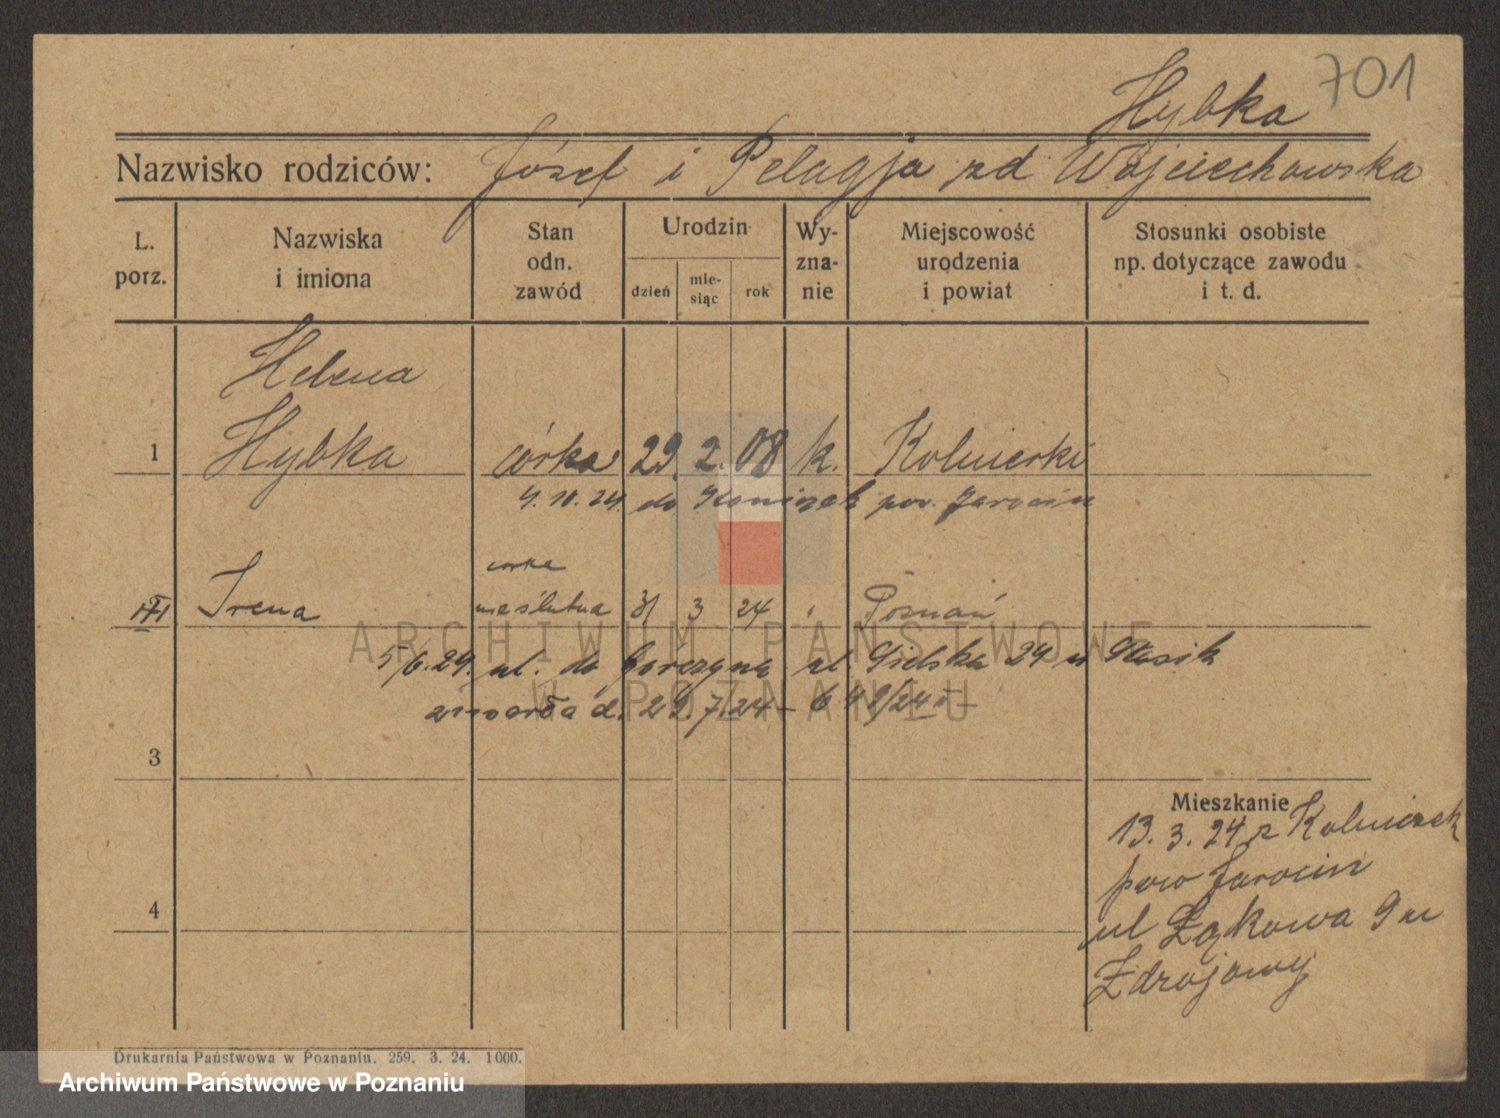 701
Hybka
Nazwisko rodziców: Józef i Pelagja zd Wojciechowska
L. porz.
Nazwiska i imiona
Stan odn. zawód
Urodzin
dzień
mie-
siąc
rok
Wy-
zna-
nie
Miejscowość urodzenia i powiat
Stosunki osobiste np. dotyczące zawodu i t. d.
Helena
1 Hybka córka 29. 2. 08 k.
4.10.24. do pow. Jarocin
córka
II Irena nieślubna 31 3 24 Poznań
5/6.24. ul. do Górczyna ul 24 u
zmarła d. 29.7.24 - 648/24
3
4
Mieszkanie
13. 3. 24 z
pow Jarocin
ul Łąkowa 9 u
Zdrojowy
Drukarnia Państwowa w Poznaniu. 259. 3. 24. 1000.
ARCHIWUM PAŃSTWOWE
W POZNANIU
Archiwum Państwowe w Poznaniu